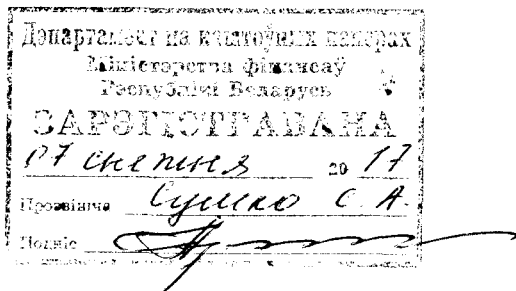 Дэпартамент па каштоўных паперах
Міністэрства фінансаў
Рэспублікі Беларусь
ЗАРЭГІСТРАВАНА
07 снежня 2017
Прозвішча Сушко С. А.
Подпіс